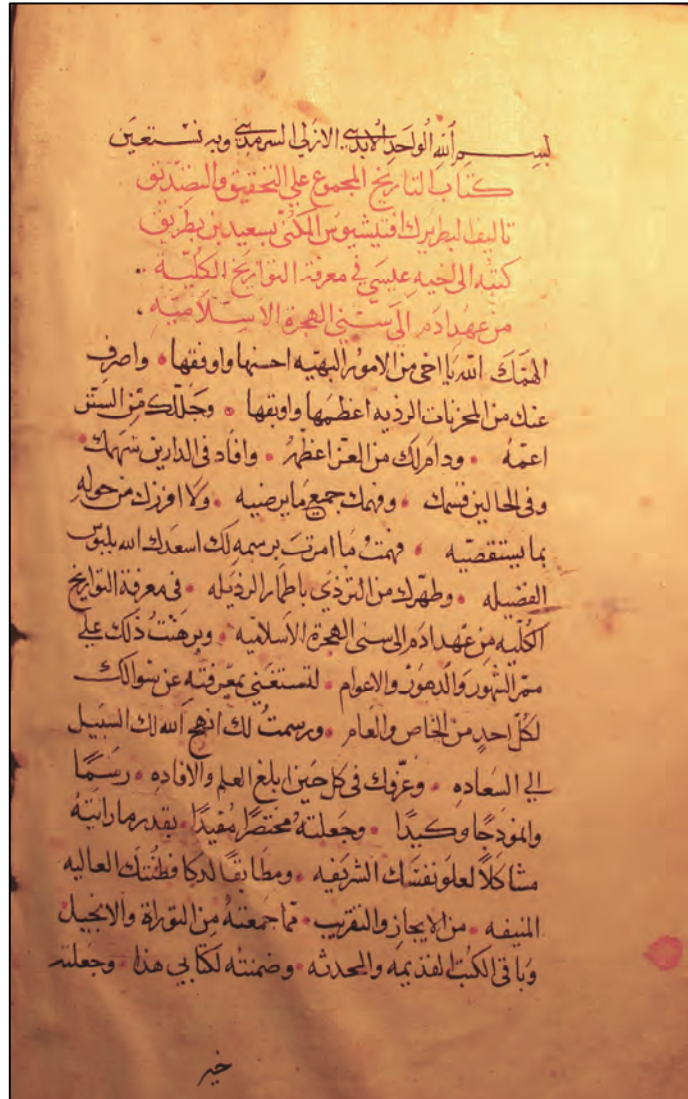 بسم الله الواحد الابدي الازلي السرمدي وبه نستعين
كتاب التاريخ المجموع علي التحقيق والتصديق
تاليف البطريرك افتيشيوس المكنّى بسعيد بن بطريق
كتبه الى اخيه عيسي في معرفة التواريخ الكليّة ..
من عهد ادم الى سني الهجرة الاسلاميه .
الهمك الله يا اخى من الامور البهيّه احسنها واوفقها • واصرف
عنك من المحزنات الرذيه اعظمها واوبقها • وجللك من الستر
اعمّهُ • ودام لك من العز اعظمهُ • وافاد فى الدارين سهمك •
وفى الحالين قسمك • وفهمك جميع ما يرضيه • ولا افرزك من حوله
بما يستقصيه • فهمتُ ما امرتَ برسمه لك اسعدك الله بلبوس
الفضيله • وطهّرك من التردّي باطمار الرذيله • فى معرفة التواريخ
الكليه من عهد ادم الى سنى الهجرة الاسلاميّه • وبرهنتُ ذلك علي
ممرّ الشهور والدهور والاعوام • لتستغني بمعرفته عن سوالك
لكل احدٍ من الخاص والعام • ورسمتُ لك انهج الله لك السبيل
الي السعاده • وعرّفك فى كل حين ابلغ العلم والافاده • رسمًا
وانموذجًا وكيدًا • وجعلته مختصرًا مُفيدًا • بقدر ما رايتهُ
مشاكلًا لعلو نفسك الشريفه • ومطابقًا لذكا فطنتك العاليه
المنيفه • من الايجاز والتقريب • مما جمعتهُ من التوراة والانجيل
وباقى الكتب القديمه والمحدثه • وضمنته لكتابي هذا • وجعلته
خير